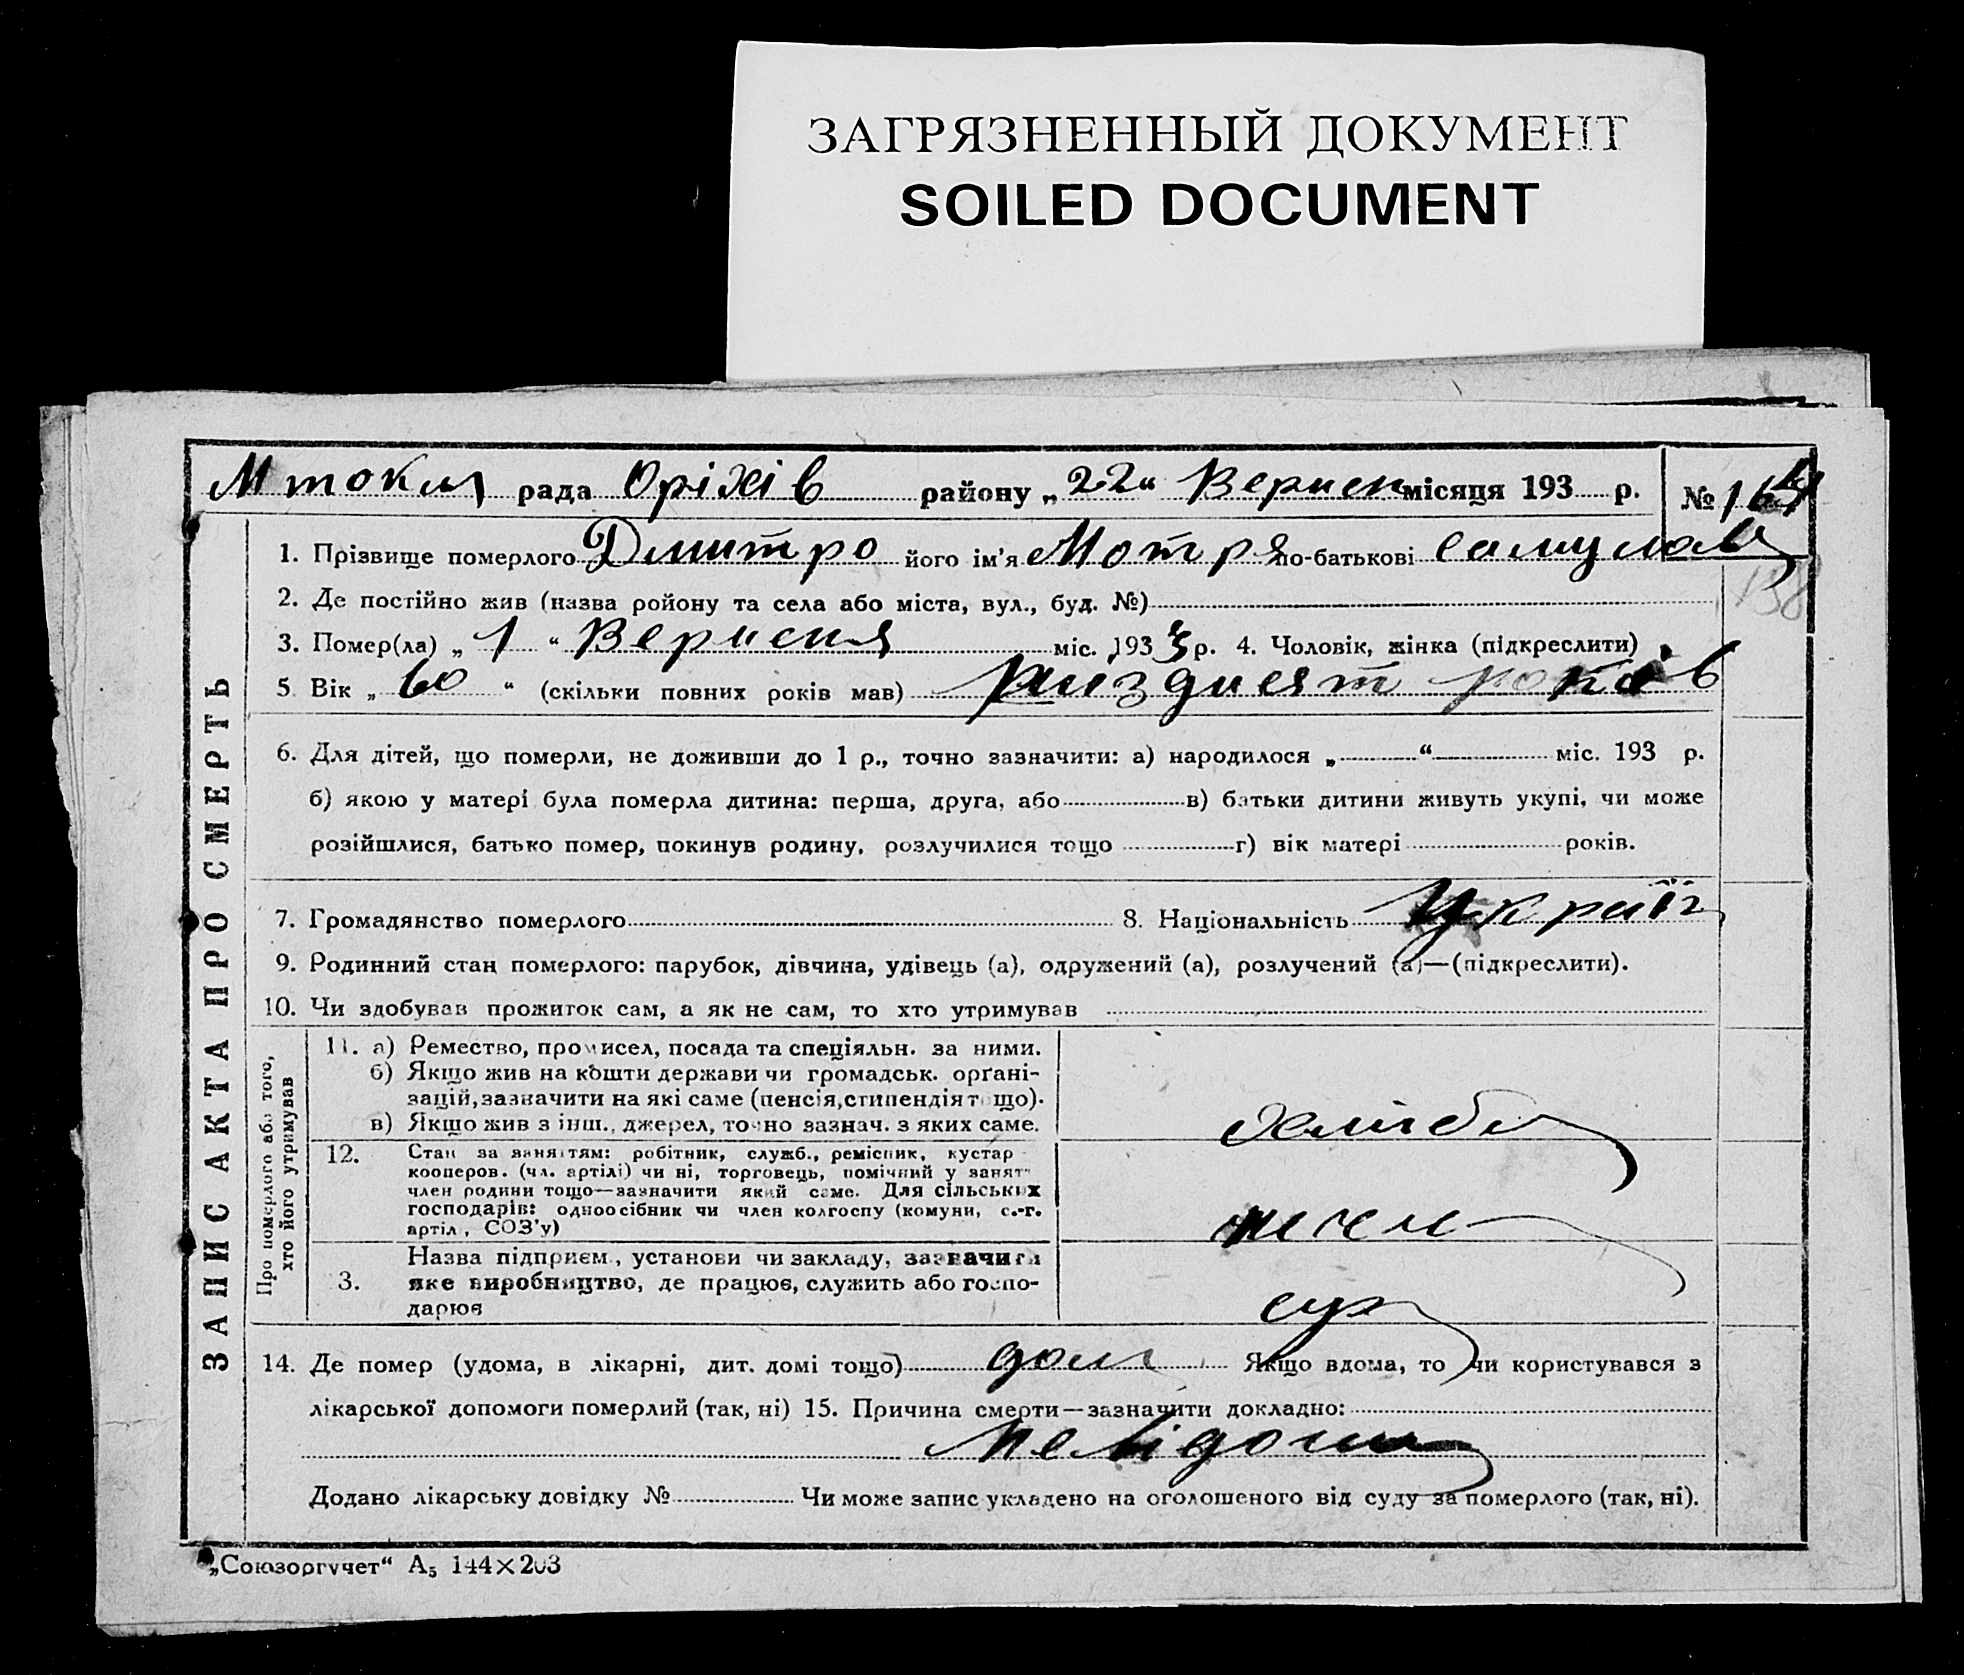 ЗАГРЯЗНЕННЫЙ ДОКУМЕНТ
SOILED DOCUMENT
рада Оріхів району „22“ Вересн місяця 193 р. №
1. Прізвище померлого Дмитро його ім'я Мотря по-батькові
2. Де постійно жив (назва ройону та села або міста, вул., буд. №)
3. Помер(ла) „ 1 “ Вересня міс. 193 р. 4. Чоловік, жінка (підкреслити)
5 Вік „ 60 “ (скільки повних років мав) років
6. Для дітей, що померли, не доживши до 1 р., точно зазначити: а) народилося „ “ міс. 193 р.
б) якою у матері була померла дитина: перша, друга, або в) батьки дитини живуть укупі, чи може
розійшлися, батько помер, покинув родину, розлучилися тощо г) вік матері років.
7. Громадянство померлого 8. Національність Україн
9. Родинний стан померлого: парубок, дівчина, удівець (а), одружений (а), розлучений (а)—(підкреслити).
10. Чи здобував прожиток сам, а як не сам, то хто утримував
ЗАПИС АКТА ПРО СМЕРТЬ
Про померлого або того,
хто його утримував
11. а) Ремество, промисел, посада та спеціяльн. за ними.
б) Якщо жив на кошти держави чи громадськ. орґані-
зацій, зазначити на які саме (пенсія, стипендія тощо).
в) Якщо жив з інш., джерел, точно зазнач. з яких саме.
Хлібо
12. Стан за заняттям: робітник, служб., ремісник, кустар
кооперов. (чл. артілі) чи ні, торговець, помічний у занят
член родини тощо—зазначити який саме. Для сільських
господарів: одноосібник чи член колгоспу (комуни, с.-г.
артіл, СОЗ'у)
нечле
3. Назва підприєм., установи чи закладу, зазначити
яке виробництво, де працює, служить або госпо-
дарює
14. Де помер (удома, в лікарні, дит. домі тощо) дом Якщо вдома, то чи користувався з
лікарської допомоги померлий (так, ні) 15. Причина смерти—зазначити докладно:
Невідома
Додано лікарську довідку № Чи може запис укладено на оголошеного від суду за померлого (так, ні).
„Союзоргучет“ А₅ 144×203